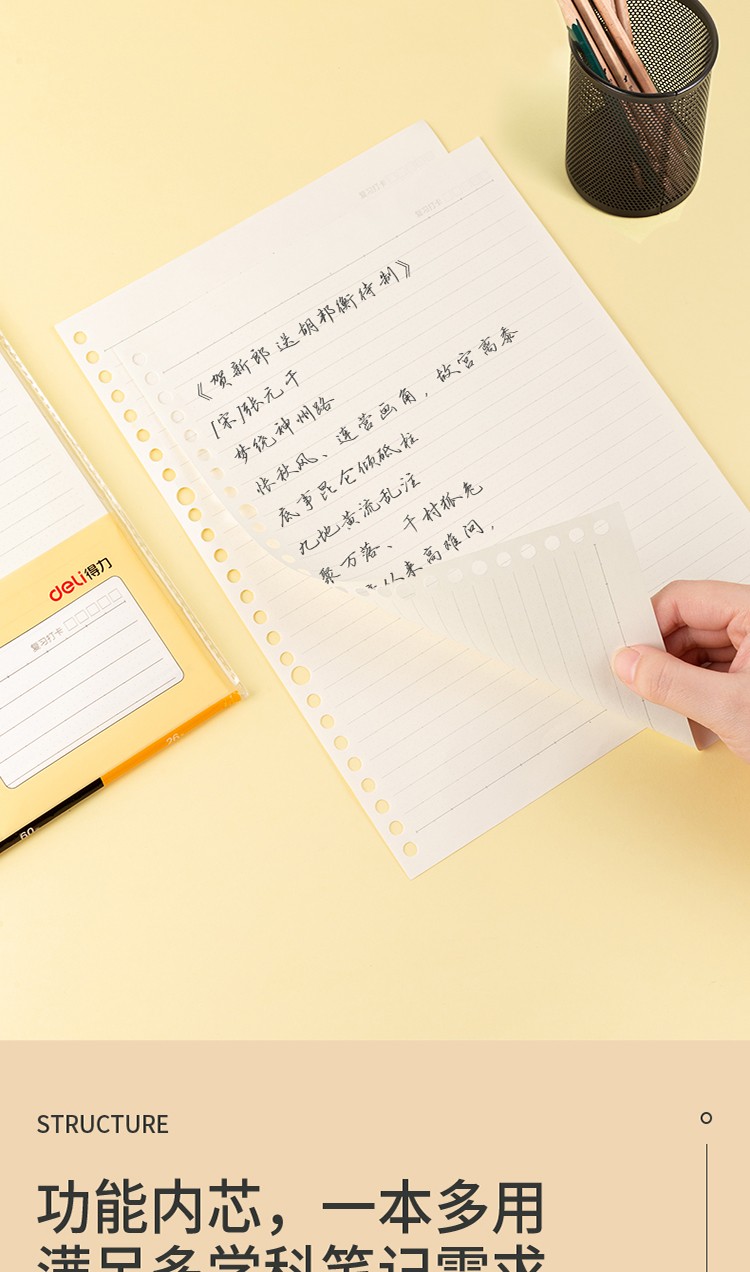 复习打卡
复习打卡
《贺新郎 送胡邦衡待制》
[宋]张元干
梦绕神州路
怅秋风、连营画角，故宫离黍
底事昆仑倾砥柱
九地黄流乱注
聚万落、千村狐兔
以来高难问，
deli得力
复习打卡
26
60
STRUCTURE
功能内芯，一本多用
满足多学科笔记需求